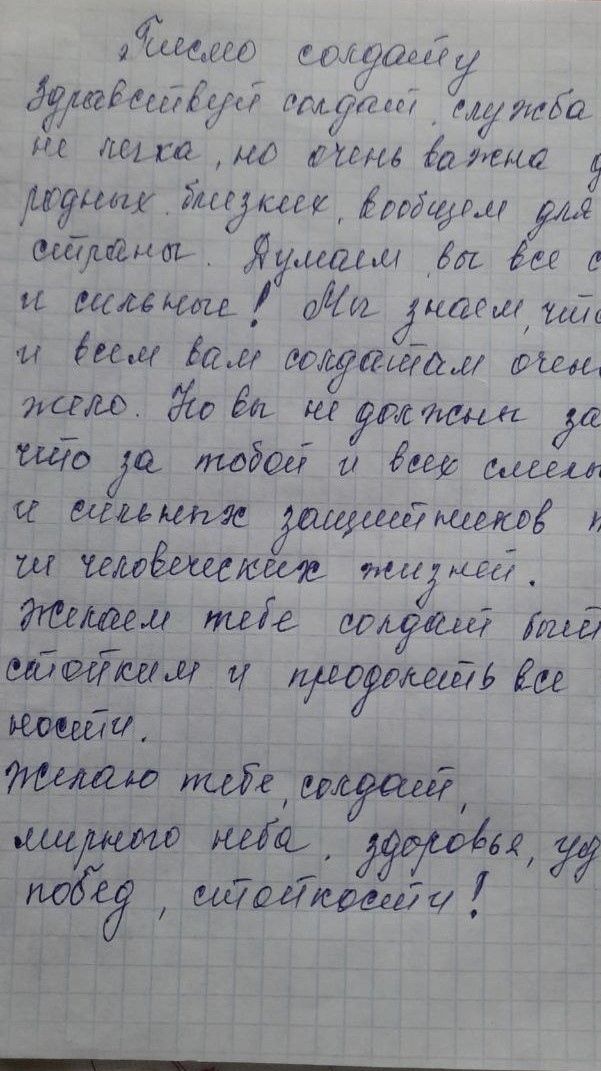 Писмо солдату
Здравствуй солдат, служба
не легка, но очень важна д
родных, близких, вообщем для
страны. Думаем, вы все с
и сильные! Мы знаем, что
и всем вам солдатам очен
жело. Но вы не должны за
что за тобой и всех смелы
и сильных защитников т
чи человеческих жизней.
Желаем тебе солдат быт
стойким и преодолеть все
ности.
Желаю тебе, солдат,
мирного неба, здоровья, уд
побед, стойкости!